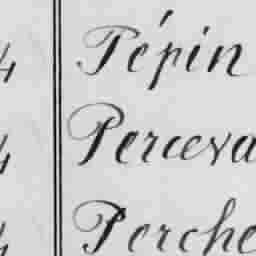 4 Pépin
4 Perceva
4 Perche